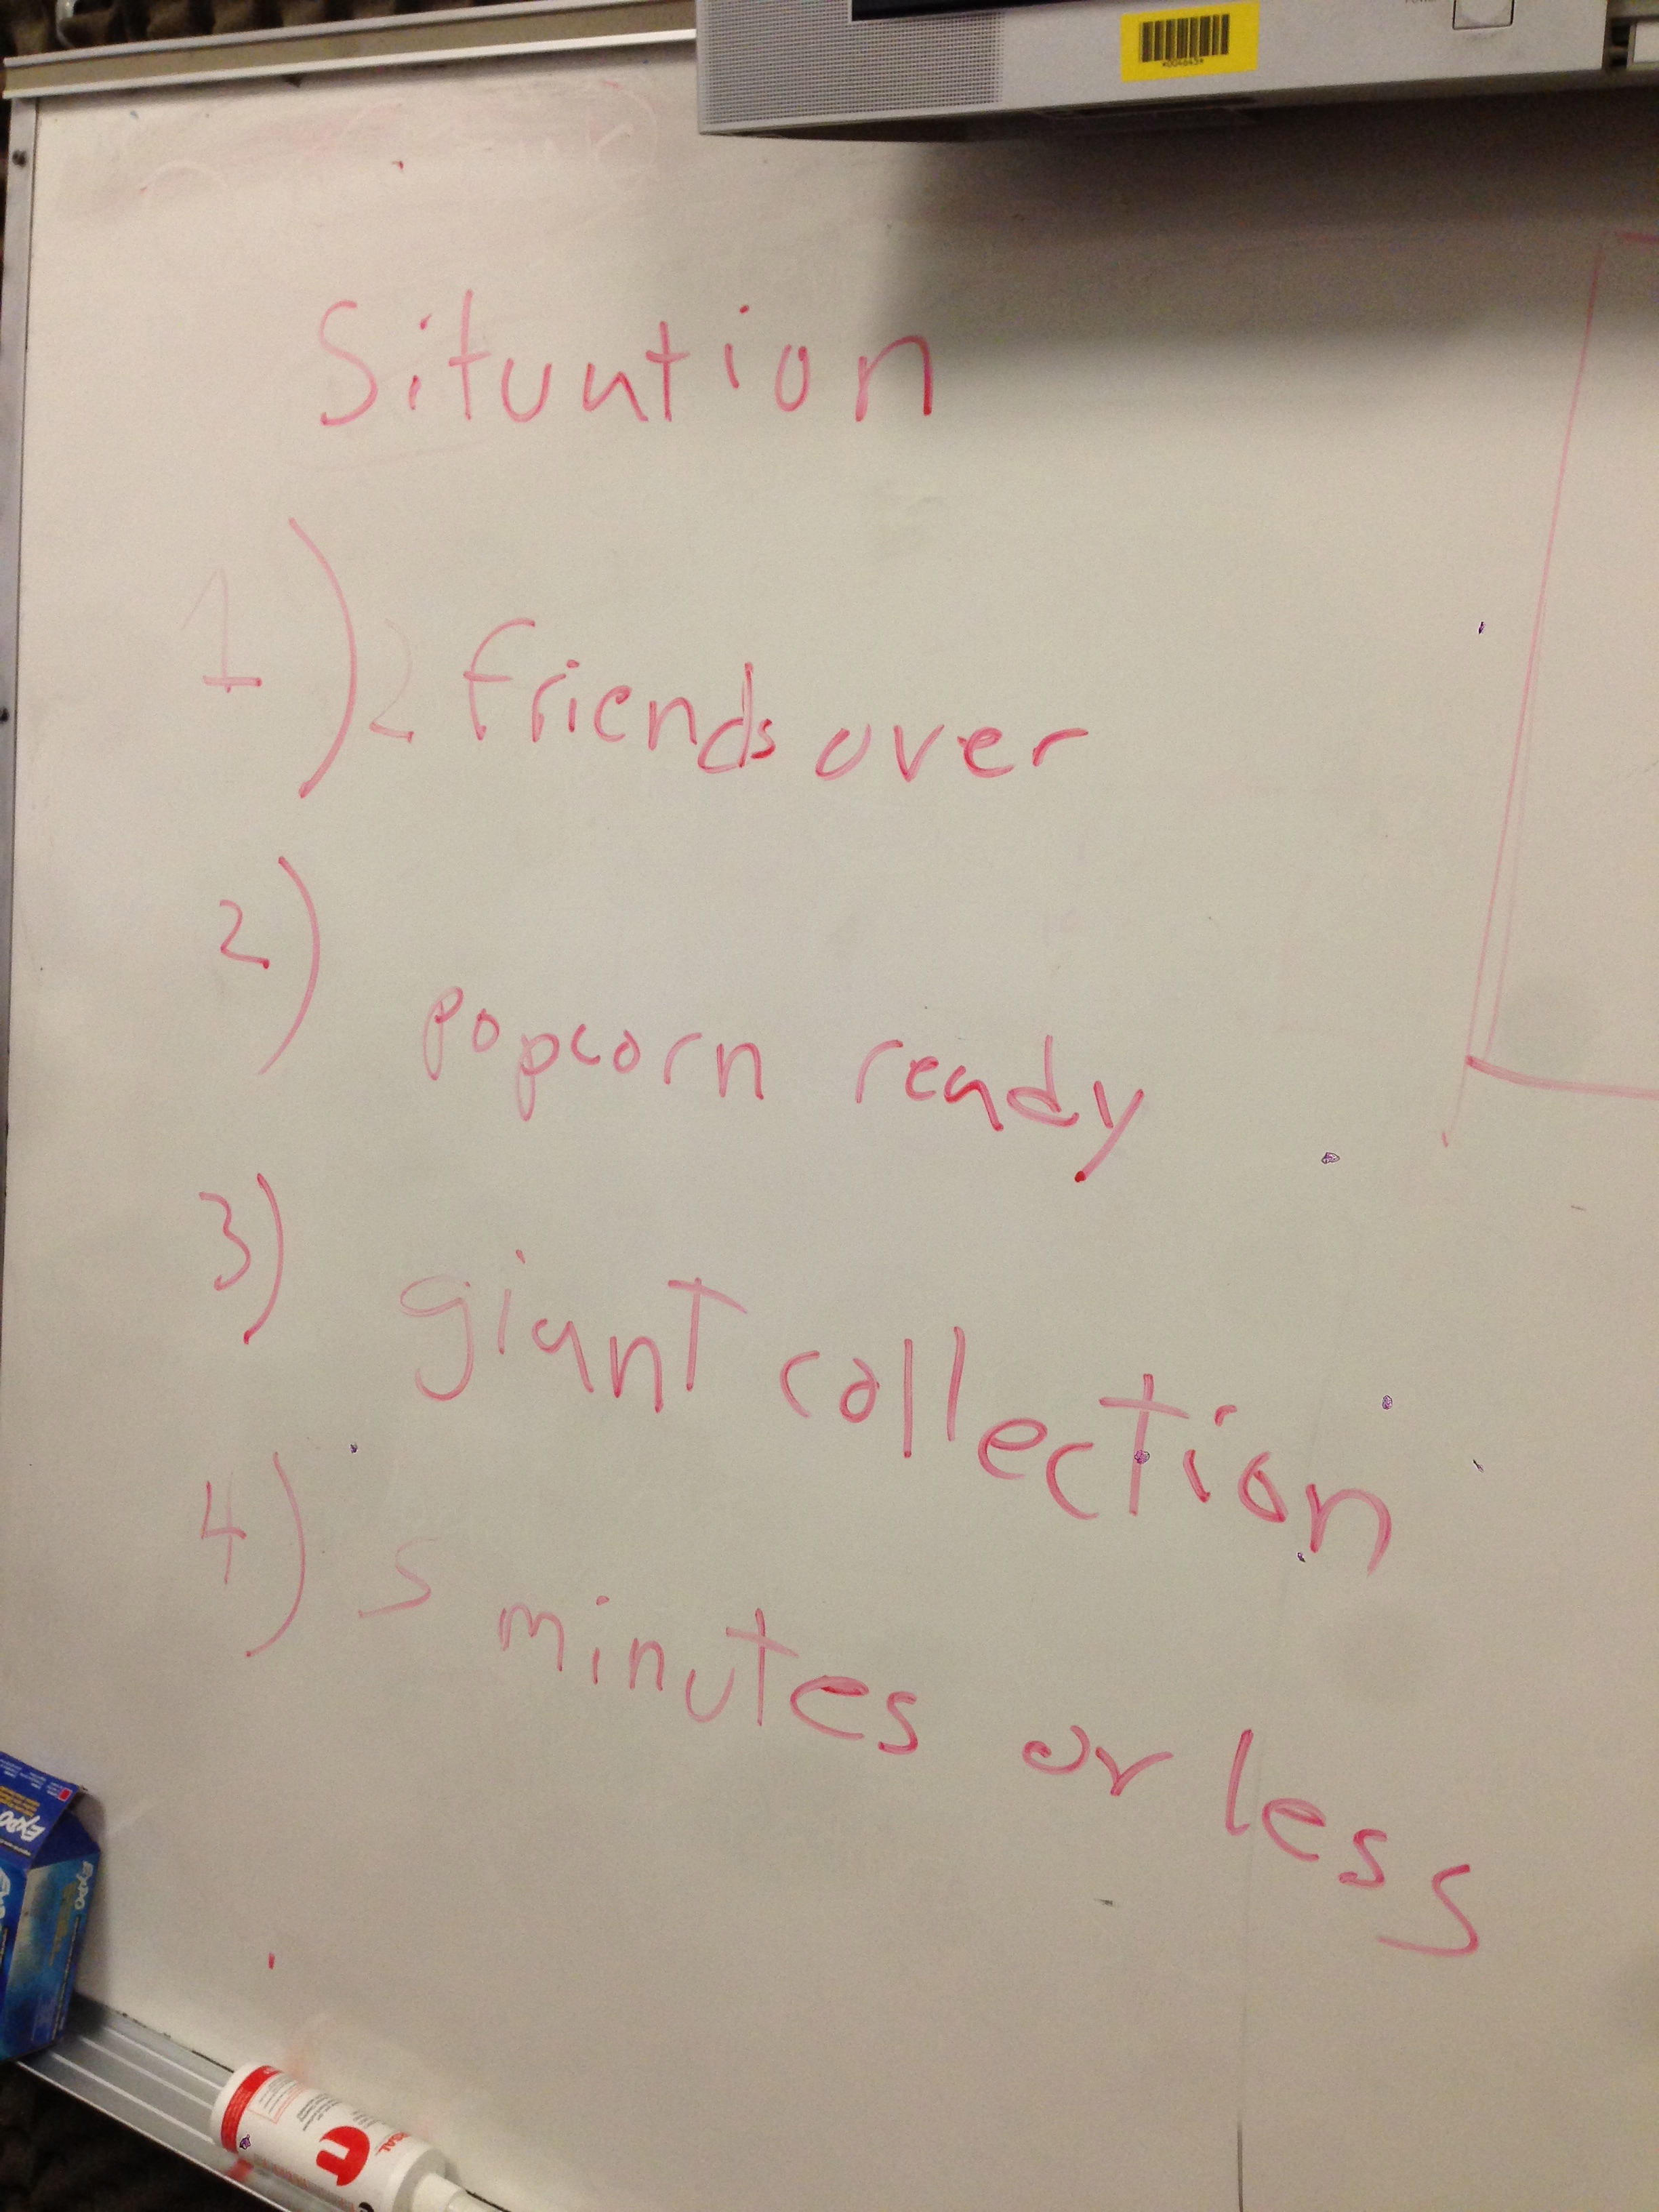 *004643*
Situation
1) 2 friends over
2) popcorn ready
3) giant collection
4) 5 minutes or less
EXPO
EXPO